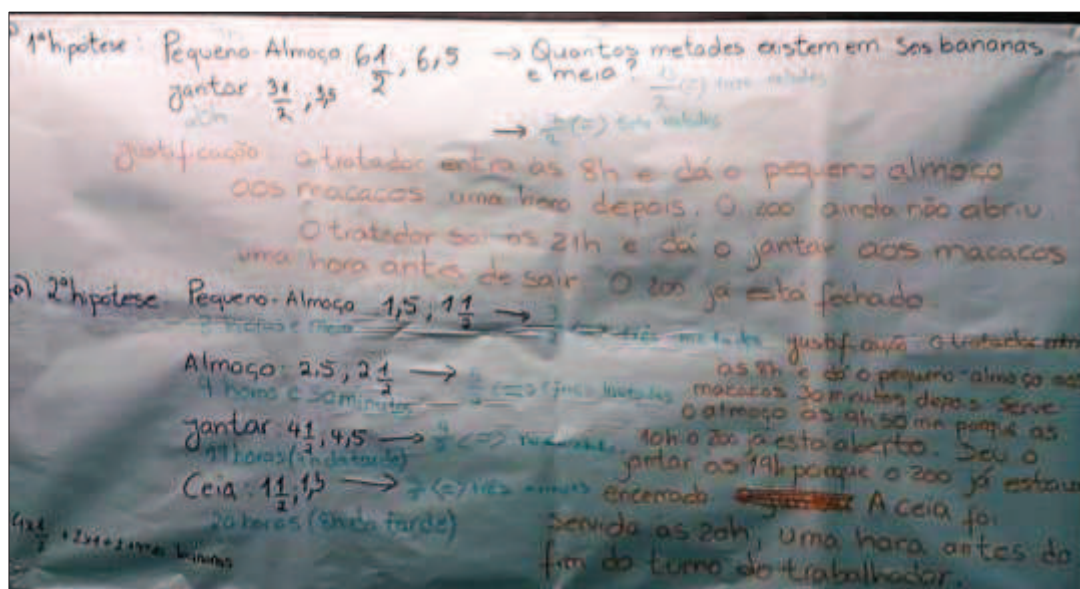 1ª hipótese: Pequeno-Almoço 6 1/2, 6,5 → Quantas metades existem em seis bananas
e meia?
jantar 3 1/2, 3,5
20h
→ 7/2 (=) sete metades
justificação: o tratador entra às 8h e dá o pequeno almoço
aos macacos uma hora depois. O zoo ainda não abriu
O tratador sai às 21h e dá o jantar aos macacos
uma hora antes de sair. O zoo já está fechado.
2ª hipótese: Pequeno-Almoço 1,5; 1 1/2 → 3/2 (=) três metades
8 horas e meia
Almoço: 2,5; 2 1/2 → 5/2 (=) cinco metades
9 horas e 50 minutos
jantar: 4 1/2, 4,5 → 9/2 (=)
19 horas
Ceia: 1 1/2, 1,5 → 3/2 (=) três metades
20 horas (8h da tarde)
justificação: o tratador entra
às 8h e dá o pequeno-almoço aos
macacos 30 minutos depois serve
o almoço às 9h 50 min porque às
10h o zoo já está aberto. Deu o
jantar às 19h porque o zoo já estava
encerrado. A ceia foi
servida às 20h, uma hora antes do
fim do turno do trabalhador.